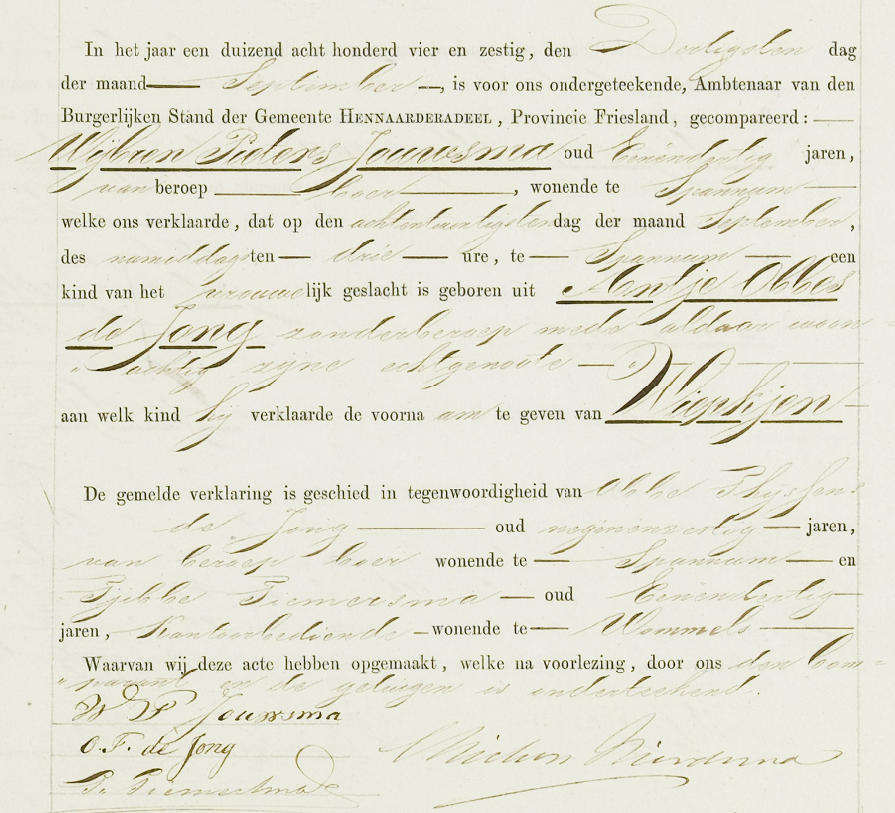 In het jaar een duizend acht honderd vier en zestig, den Dertigsten dag
der maand September, is voor ons ondergeteekende, Ambtenaar van den
Burgerlijken Stand der Gemeente HENNAARDERADEEL, Provincie Friesland, gecompareerd:
Wijbren Pieters Jouwsma oud Eenendertig jaren,
van beroep boer, wonende te Spannum
welke ons verklaarde, dat op den achtentwintigsten dag der maand September,
des namiddags ten drie ure, te Spannum een
kind van het vrouwelijk geslacht is geboren uit Antje Obbes
de Jong zonder beroep mede aldaar woon
achtig zijne echtgenoote
aan welk kind hij verklaarde de voornaam te geven van Wiepkjen
De gemelde verklaring is geschied in tegenwoordigheid van Obbe
de Jong oud negenenzestig jaren,
van beroep boer wonende te Spannum en
Tjibbe Tiemersma oud Eenendertig
jaren, Kantoorbediende wonende te Wommels
Waarvan wij deze acte hebben opgemaakt, welke na voorlezing, door ons den Com=
"parant en de getuigen is onderteekend.
W P Jouwsma
O. F. de Jong
Tj. Tiemersma